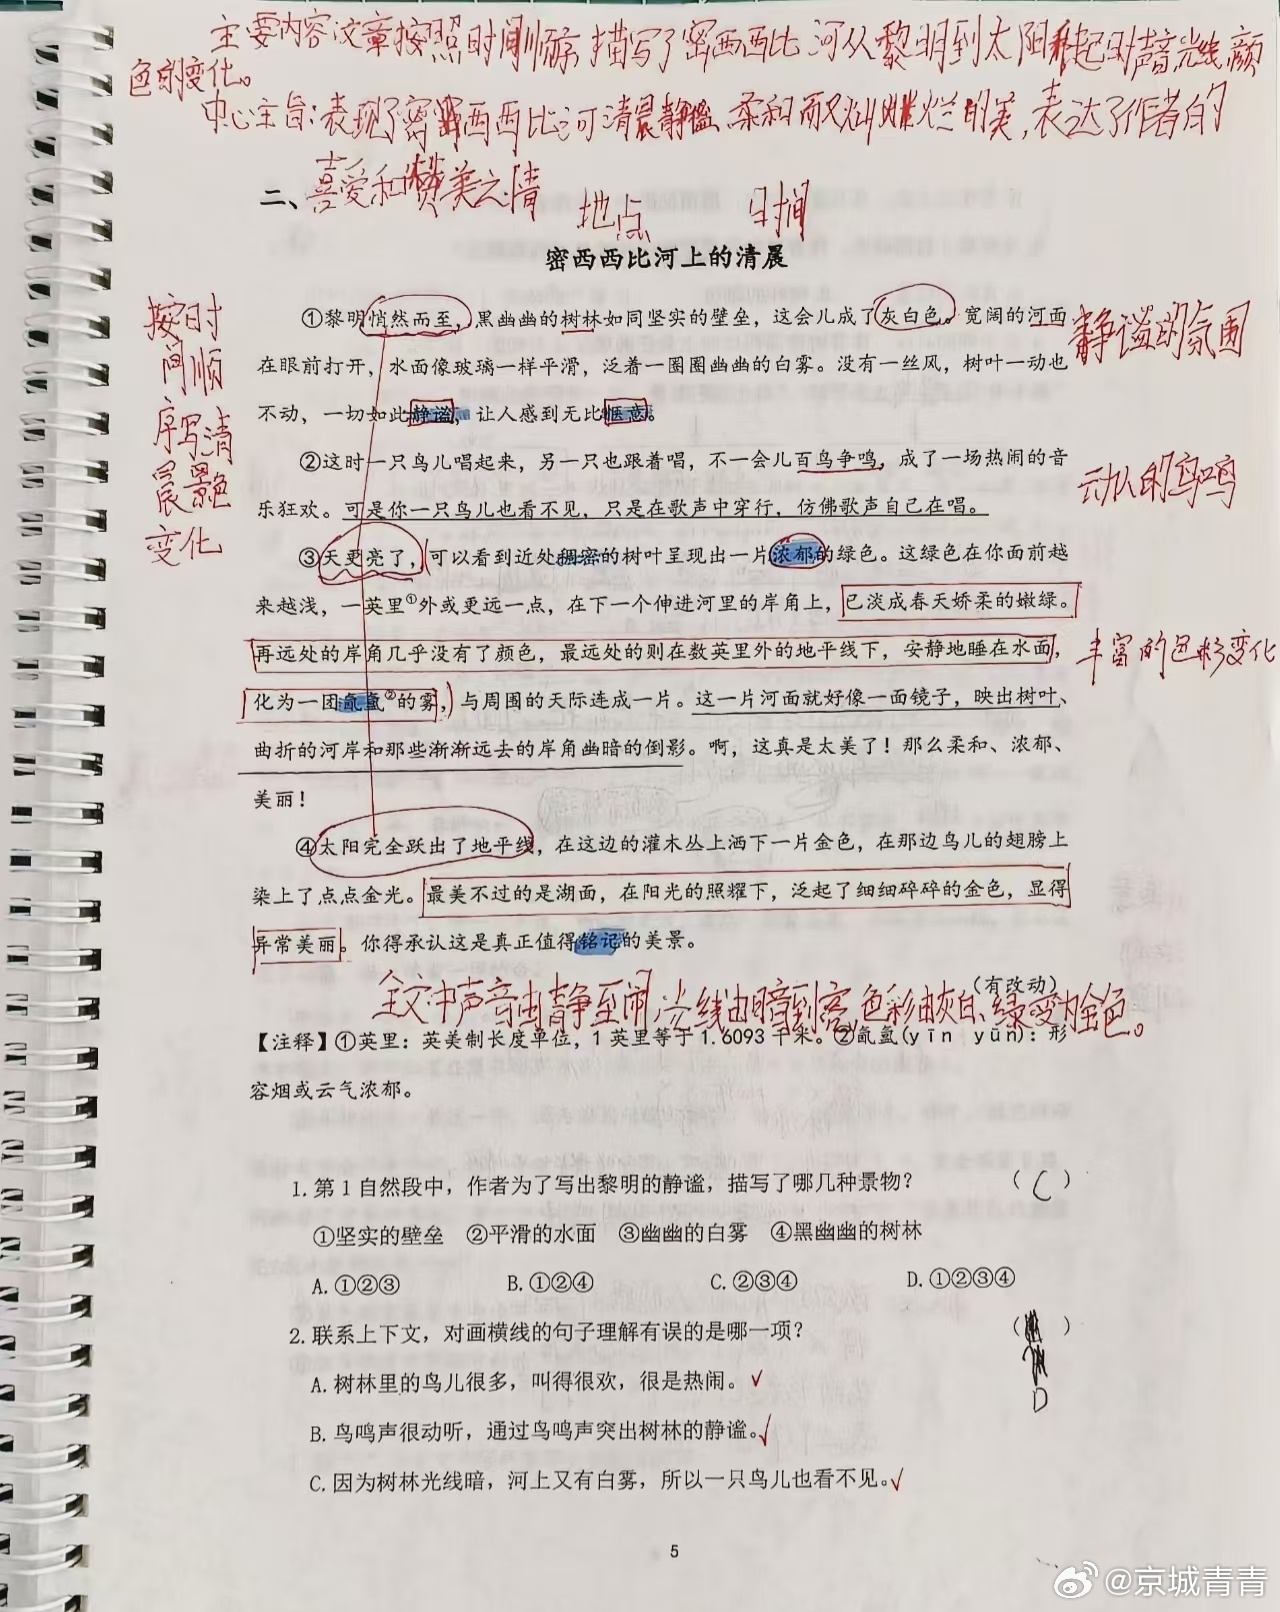 主要内容文章按照时间顺序描写了密西西比河从黎明到太阳升起时声音光线颜
色的变化。
中心主旨:表现了密西西比河清晨静谧柔和而又灿烂的美,表达了作者的
二、喜爱和赞美之情
地点 时间
密西西比河上的清晨
①黎明悄然而至,黑幽幽的树林如同坚实的壁垒,这会儿成了灰白色。宽阔的河面
在眼前打开,水面像玻璃一样平滑,泛着一圈圈幽幽的白雾。没有一丝风,树叶一动也
不动,一切如此静谧,让人感到无比惬意。
静谧的氛围
按时
间顺
序写清
晨景色
变化
②这时一只鸟儿唱起来,另一只也跟着唱,不一会儿百鸟争鸣,成了一场热闹的音
乐狂欢。可是你一只鸟儿也看不见,只是在歌声中穿行,仿佛歌声自己在唱。
动人的鸟鸣
③天更亮了,可以看到近处稠密的树叶呈现出一片浓郁的绿色。这绿色在你面前越
来越浅,一英里①外或更远一点,在下一个伸进河里的岸角上,已淡成春天娇柔的嫩绿。
再远处的岸角几乎没有了颜色,最远处的则在数英里外的地平线下,安静地睡在水面,
化为一团氤氲②的雾,与周围的天际连成一片。这一片河面就好像一面镜子,映出树叶、
曲折的河岸和那些渐渐远去的岸角幽暗的倒影。啊,这真是太美了!那么柔和、浓郁、
美丽!
丰富的色彩变化
④太阳完全跃出了地平线,在这边的灌木丛上洒下一片金色,在那边鸟儿的翅膀上
染上了点点金光。最美不过的是湖面,在阳光的照耀下,泛起了细细碎碎的金色,显得
异常美丽。你得承认这是真正值得铭记的美景。
(有改动)
全文中声音由静至闹,光线由暗到亮,色彩由灰白、绿变为金色。
【注释】①英里:英美制长度单位,1英里等于1.6093千米。②氤氲(yīn yūn):形
容烟或云气浓郁。
1.第1自然段中,作者为了写出黎明的静谧,描写了哪几种景物? ( C )
①坚实的壁垒 ②平滑的水面 ③幽幽的白雾 ④黑幽幽的树林
A.①②③ B.①②④ C.②③④ D.①②③④
2.联系上下文,对画横线的句子理解有误的是哪一项? ( )
D
A.树林里的鸟儿很多,叫得很欢,很是热闹。✓
B.鸟鸣声很动听,通过鸟鸣声突出树林的静谧。✓
C.因为树林光线暗,河上又有白雾,所以一只鸟儿也看不见。✓
5
@京城青青